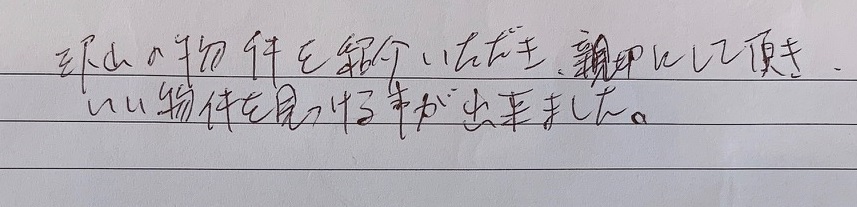 沢山の物件を紹介いただき、親切にして頂き、
いい物件を見つける事が出来ました。